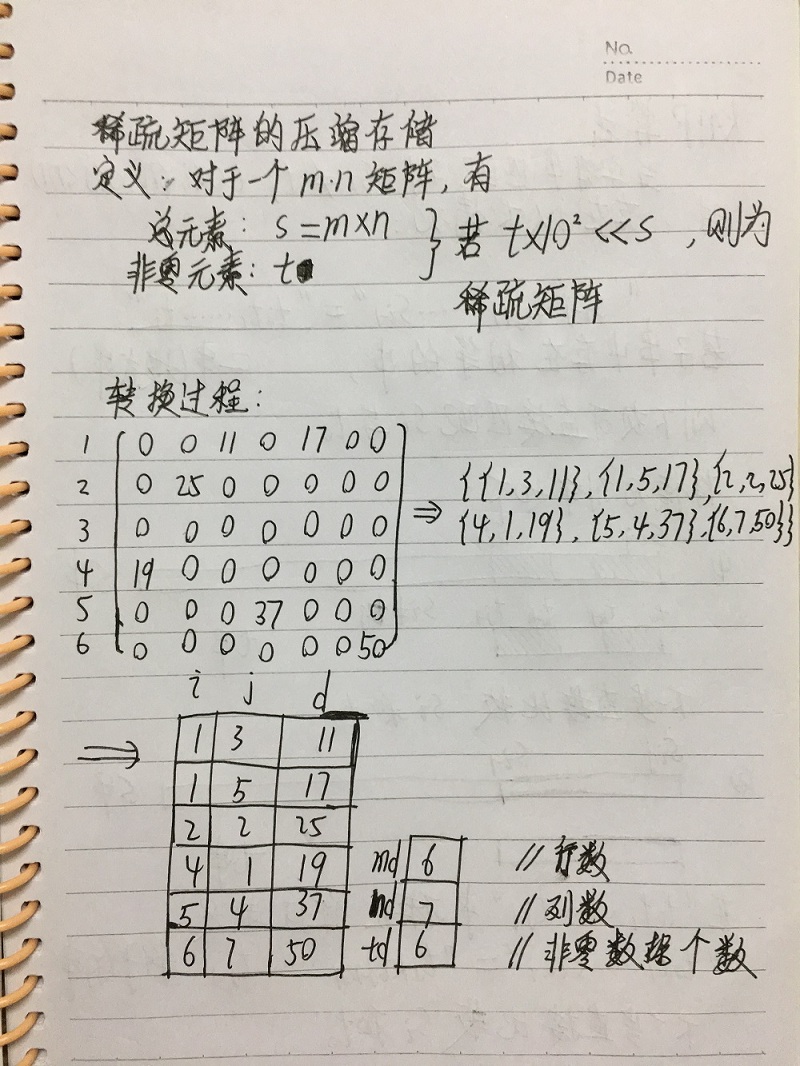 No.
Date
稀疏矩阵的压缩存储
定义：对于一个 m·n 矩阵，有
总元素：s=m×n
非零元素：t
} 若 t×10² << s ，则为
稀疏矩阵
转换过程：
1 0 0 11 0 17 0 0
2 0 25 0 0 0 0 0
3 0 0 0 0 0 0 0
4 19 0 0 0 0 0 0
5 0 0 0 37 0 0 0
6 0 0 0 0 0 0 50
⇒ {{1,3,11},{1,5,17},{2,2,25}
{4,1,19},{5,4,37},{6,7,50}}
i j d
⇒ 1 3 11
1 5 17
2 2 25
4 1 19
5 4 37
6 7 50
md 6 //行数
nd 7 //列数
td 6 //非零数据个数